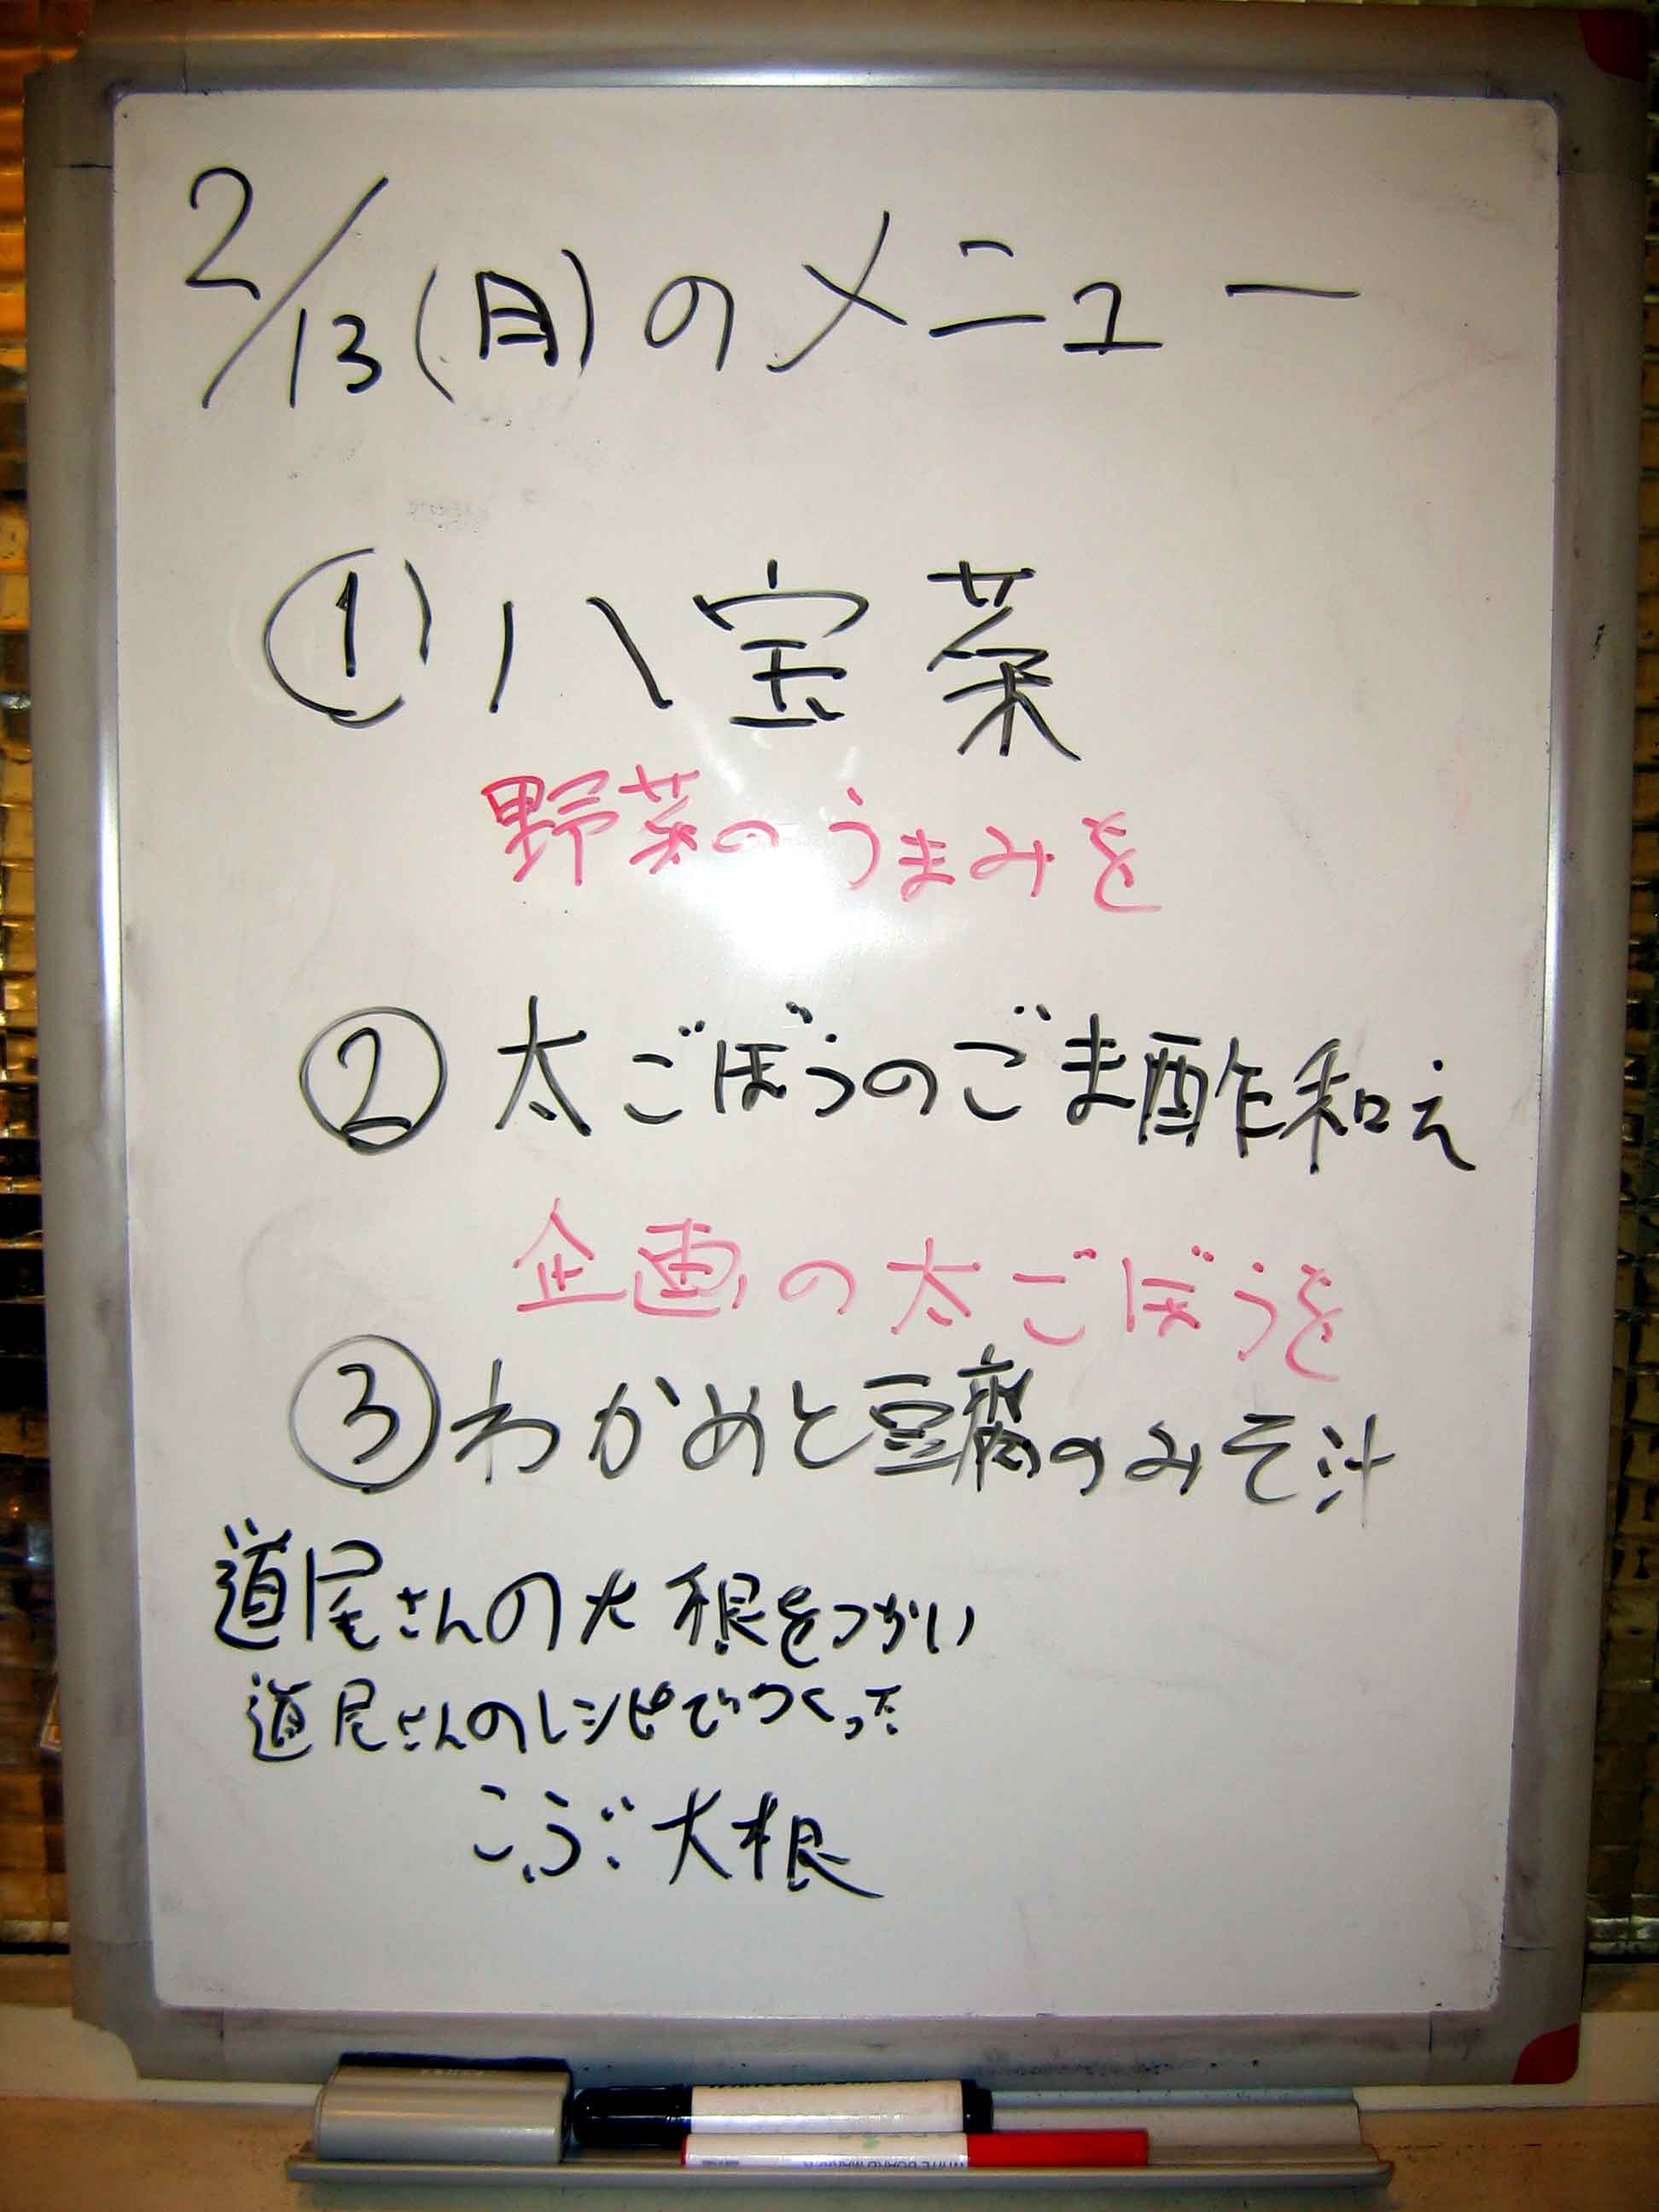 2/13(月)のメニュー
① 八宝菜
野菜のうまみを
② 太ごぼうのごま酢和え
企画の太ごぼうを
③ わかめと豆腐のみそ汁
道尾さんの大根をつかい
道尾さんのレシピでつくった
こぶ大根